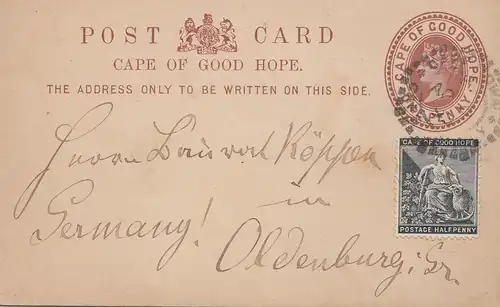 POST CARD
CAPE OF GOOD HOPE.
THE ADDRESS ONLY TO BE WRITTEN ON THIS SIDE.
CAPE OF GOOD HOPE.
ONE PENNY.
Herrn Baurat Köppen
in
Germany! Oldenburg i. Gr.
CAPE OF GOOD HOPE
POSTAGE HALFPENNY